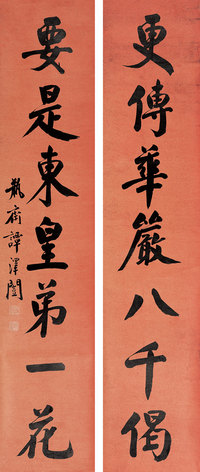 更傳華嚴八千偈
要是東皇第一花
瓶齋譚澤闓